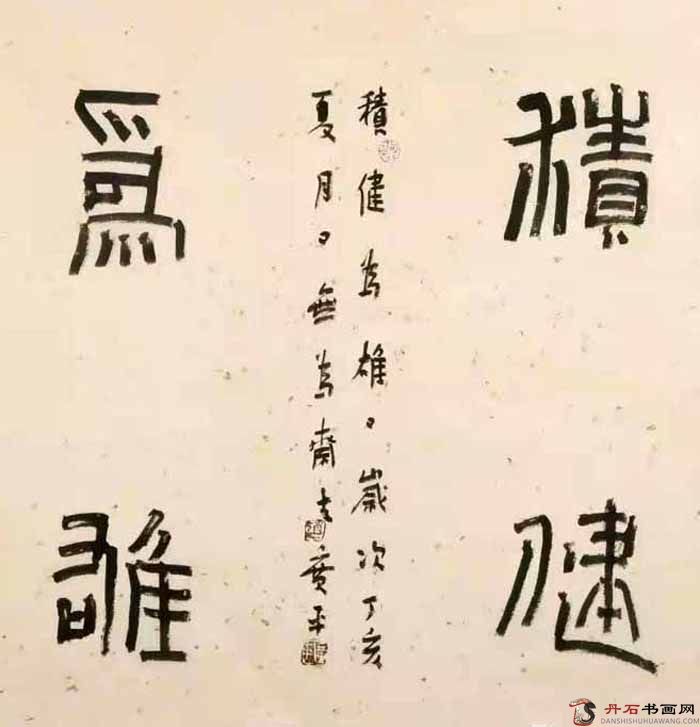 積健
積健為雄歲次丁亥
夏月無為齋主平
爲雄
丹石书画网
DANSHISHUHUAWANG.COM